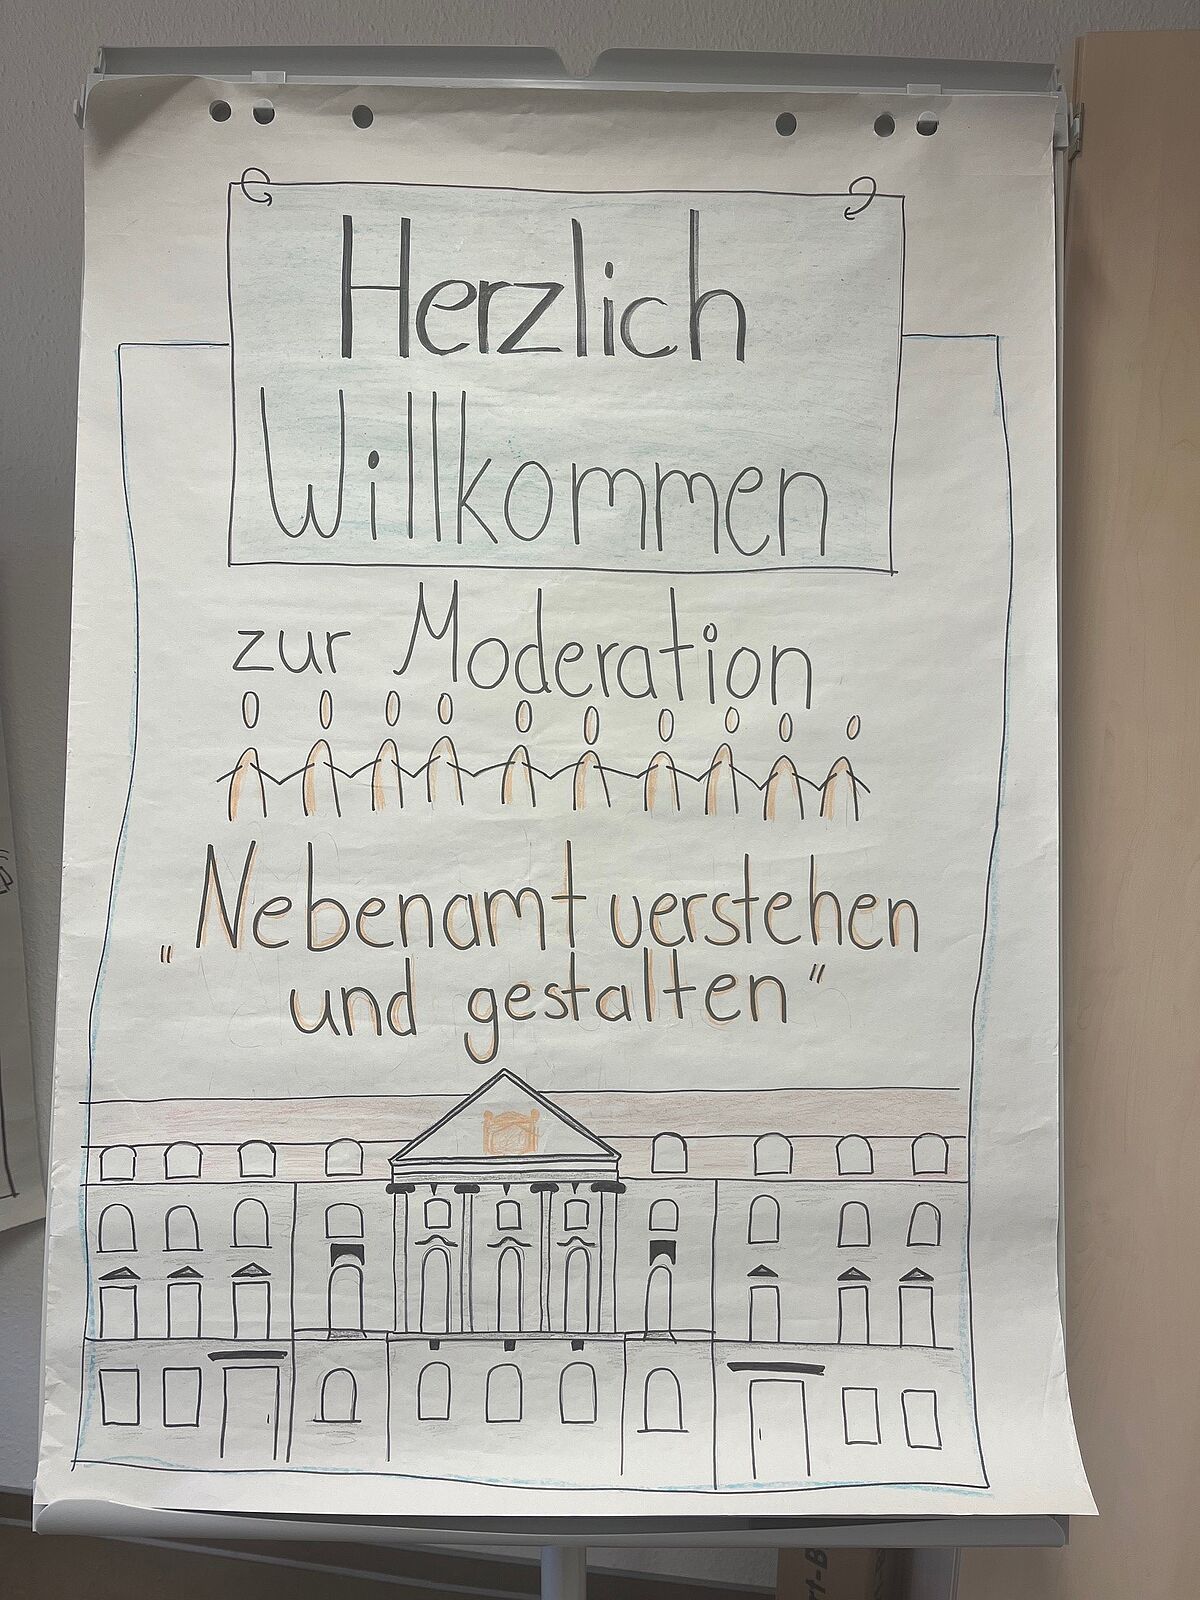 Herzlich
Willkommen
zur Moderation
„Nebenamt verstehen
und gestalten"